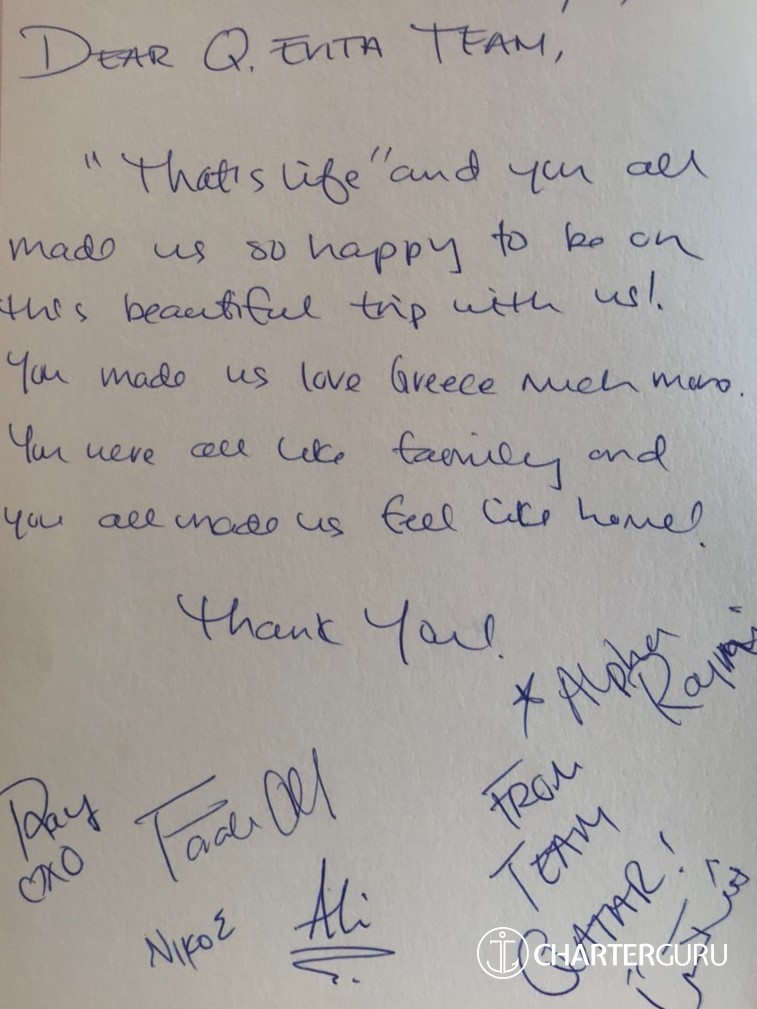 DEAR Q. EVITA TEAM,
"That's life" and you all
made us so happy to be on
this beautiful trip with us!
You made us love Greece much more.
You were all like family and
you all made us feel like home!
Thank You!
* Alpha
Ray
OXO
Fadi
FROM
TEAM
QATAR!
ΝΙΚΟΣ
Ali
CHARTERGURU